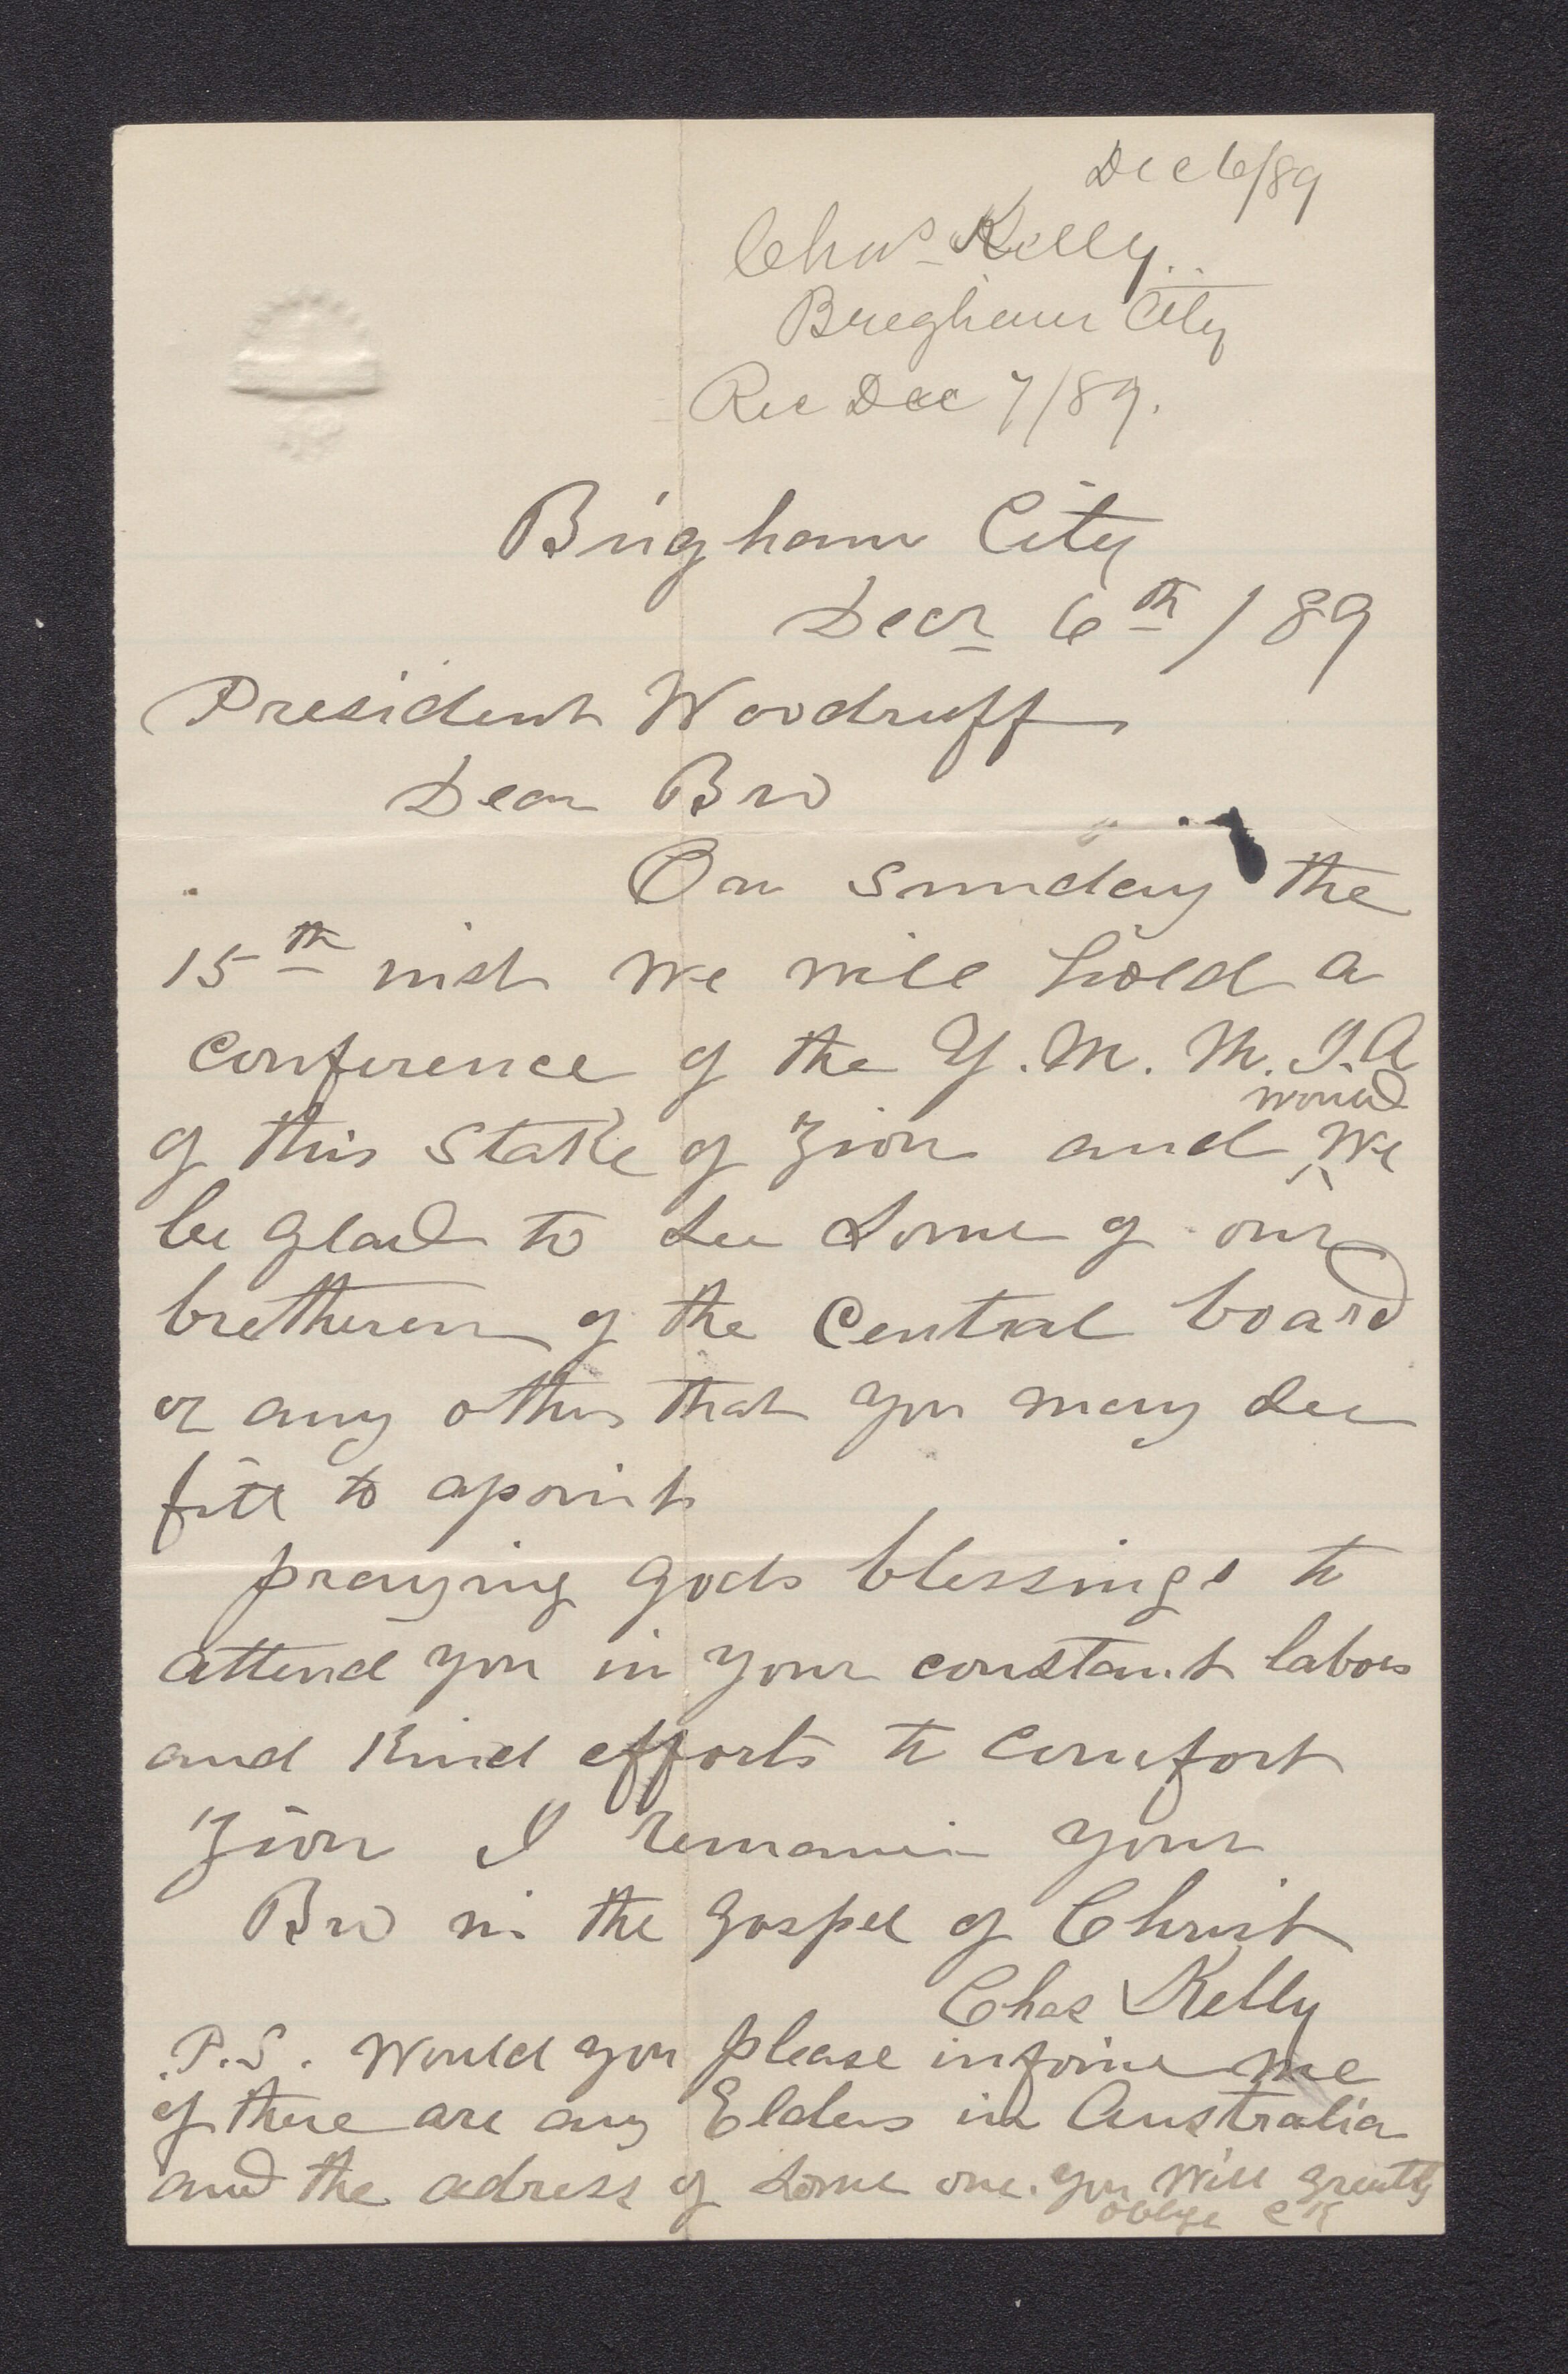 Dec 6/89
Chas Kelly
Brigham City
Rec Dec 7/89.
Brigham City
Decr 6th / 89
President Woodruff
Dear Bro
On Sunday the
15th inst we will hold a
Conference of the Y. M. M. I. A
of this Stake of Zion and would we
be glad to see some of our
bretheren of the Central board
or any other that you may see
fitt to apoint
praying gods blessings to
attend you in your constant labors
and kind efforts to comfort
Zion I remain your
Bro in the gospel of Christ
Chas Kelly
P.S. Would you please inform me
if there are any Elders in Australia
and the adress of some one. you will greatly
oblige CK